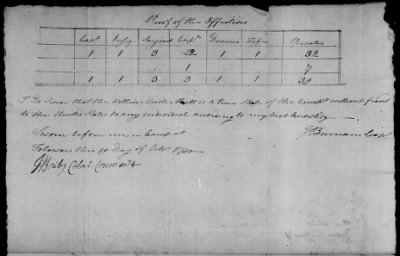 Proof of the Effectives
Capt Ensign Serjeant Corpl Drummer Fifer Privates
1 1 3 2 1 1 32
1 7
1 1 3 3 1 1
I Do Swear that the Within Muster Roll is a true State of the Company without fraud
to the United States or to any individual according to my best knowledge
Sworn before me in
this Day of Octor 1780
J Burnam Capt
Colol Commandt